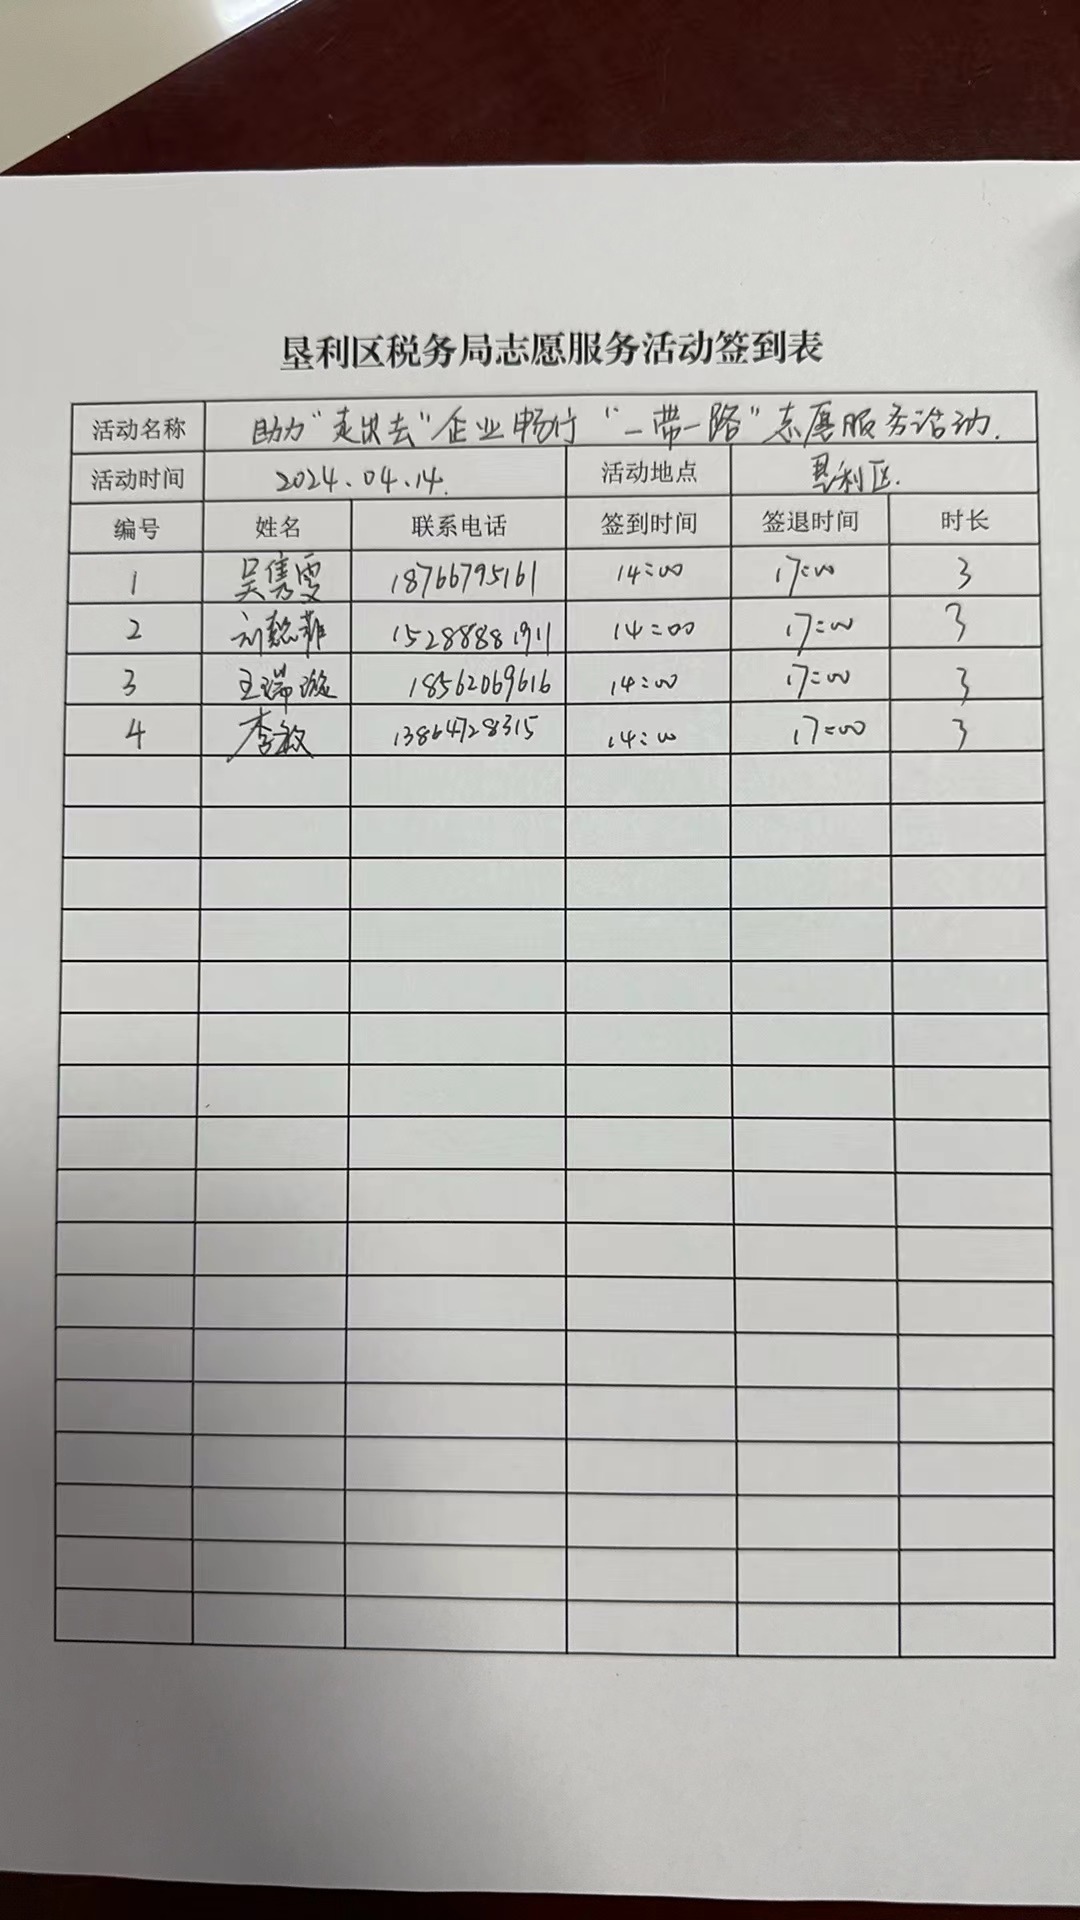 垦利区税务局志愿服务活动签到表
活动名称 助力"走出去"企业畅行"一带一路"志愿服务活动.
活动时间 2024.04.14. 活动地点 垦利区.
编号 姓名 联系电话 签到时间 签退时间 时长
1 吴隽雯 18766795161 14:00 17:00 3
2 刘懿菲 15288881911 14:00 17:00 3
3 王瑞璇 18562069616 14:00 17:00 3
4 李敏 13864728315 14:00 17:00 3